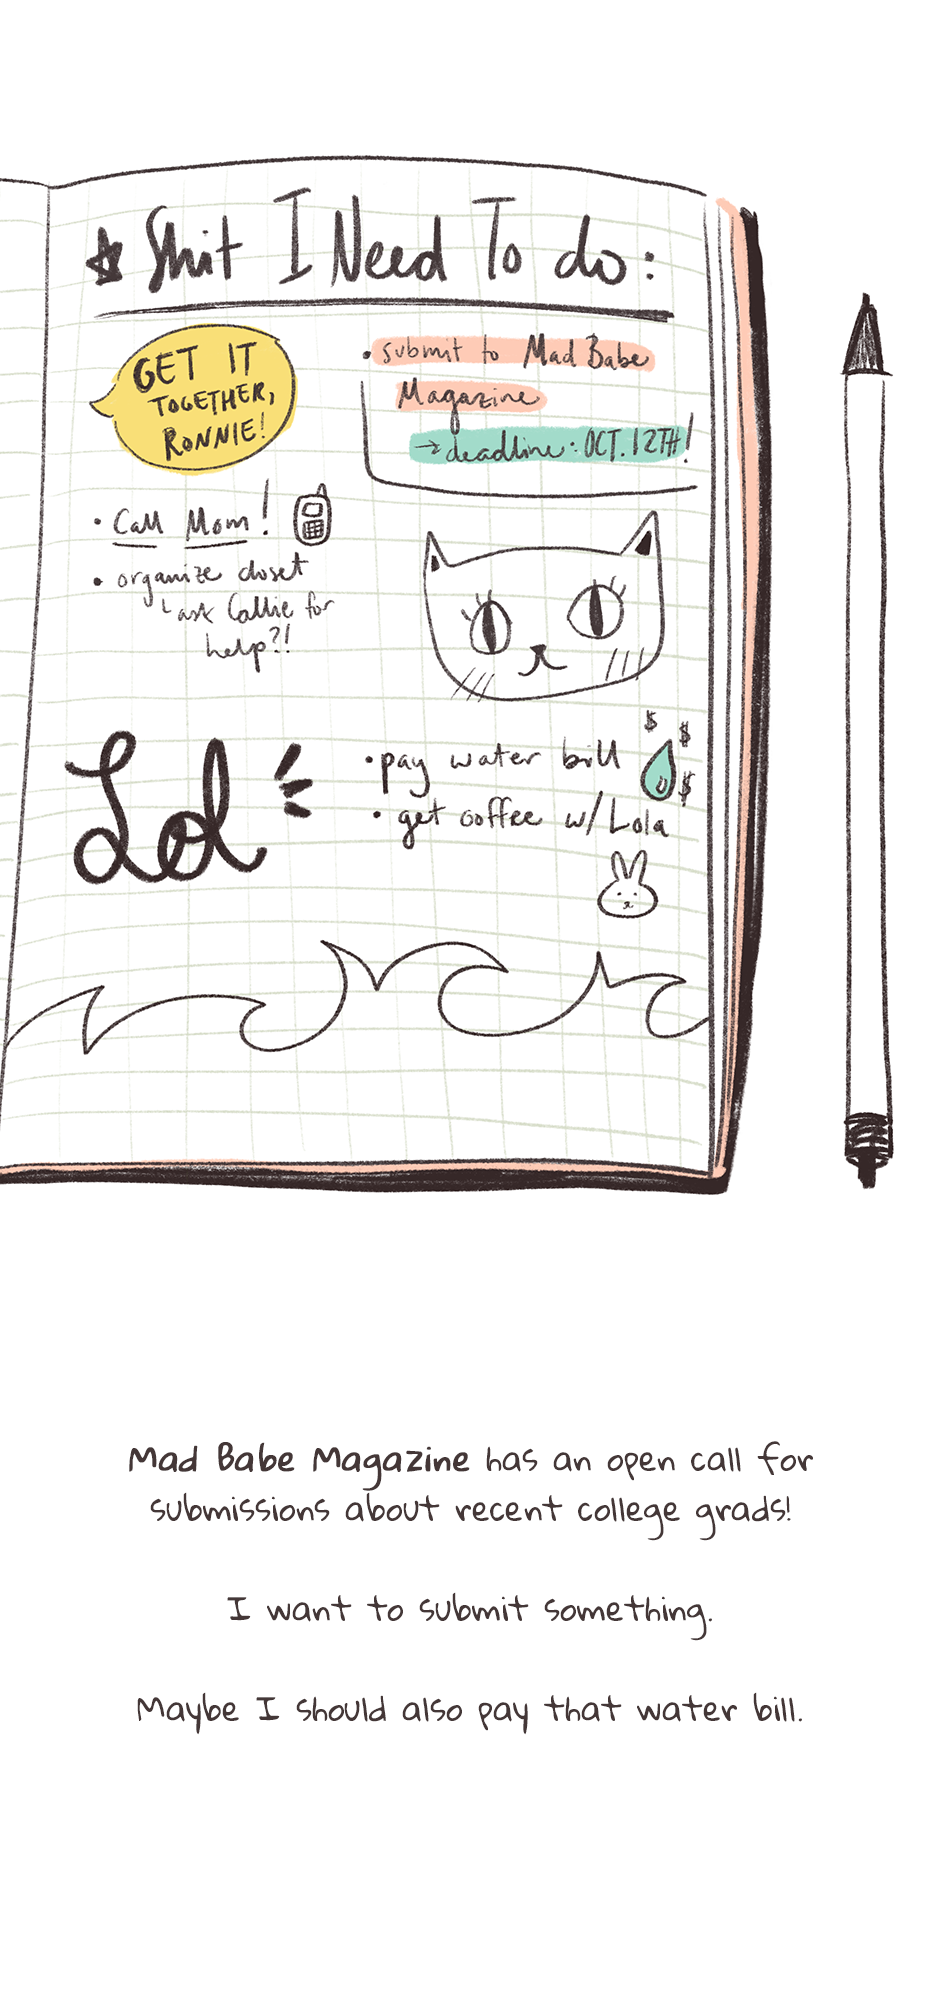 Shit I Need To do:
GET IT
TOGETHER,
RONNIE!
• submit to Mad Babe
Magazine
→ deadline: OCT. 12TH!
• Call Mom!
• organize closet
↳ ask Callie for
help?!
Lol
• pay water bill
$ $ $
• get coffee w/ Lola
Mad Babe Magazine has an open call for
submissions about recent college grads!
I want to submit something.
Maybe I should also pay that water bill.